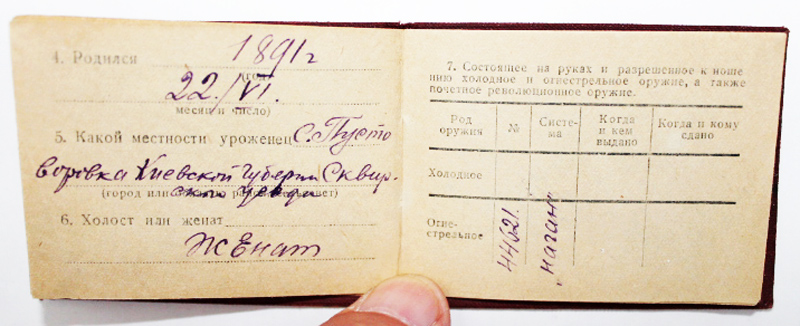 4. Родился 1891г
(год)
22/VI.
месяц и число)
5. Какой местности уроженец С. Пусто
воровка Киевской Губернии Сквир.
(город или
ского уезда
6. Холост или женат
Женат
7. Состоящее на руках и разрешенное к ноше
нию холодное и огнестрельное оружие, а также
почетное революционное оружие.
Род оружия № Систе-ма Когда и кем выдано Когда и кому сдано
Холодное
Огне-
стрельное 44621. наган